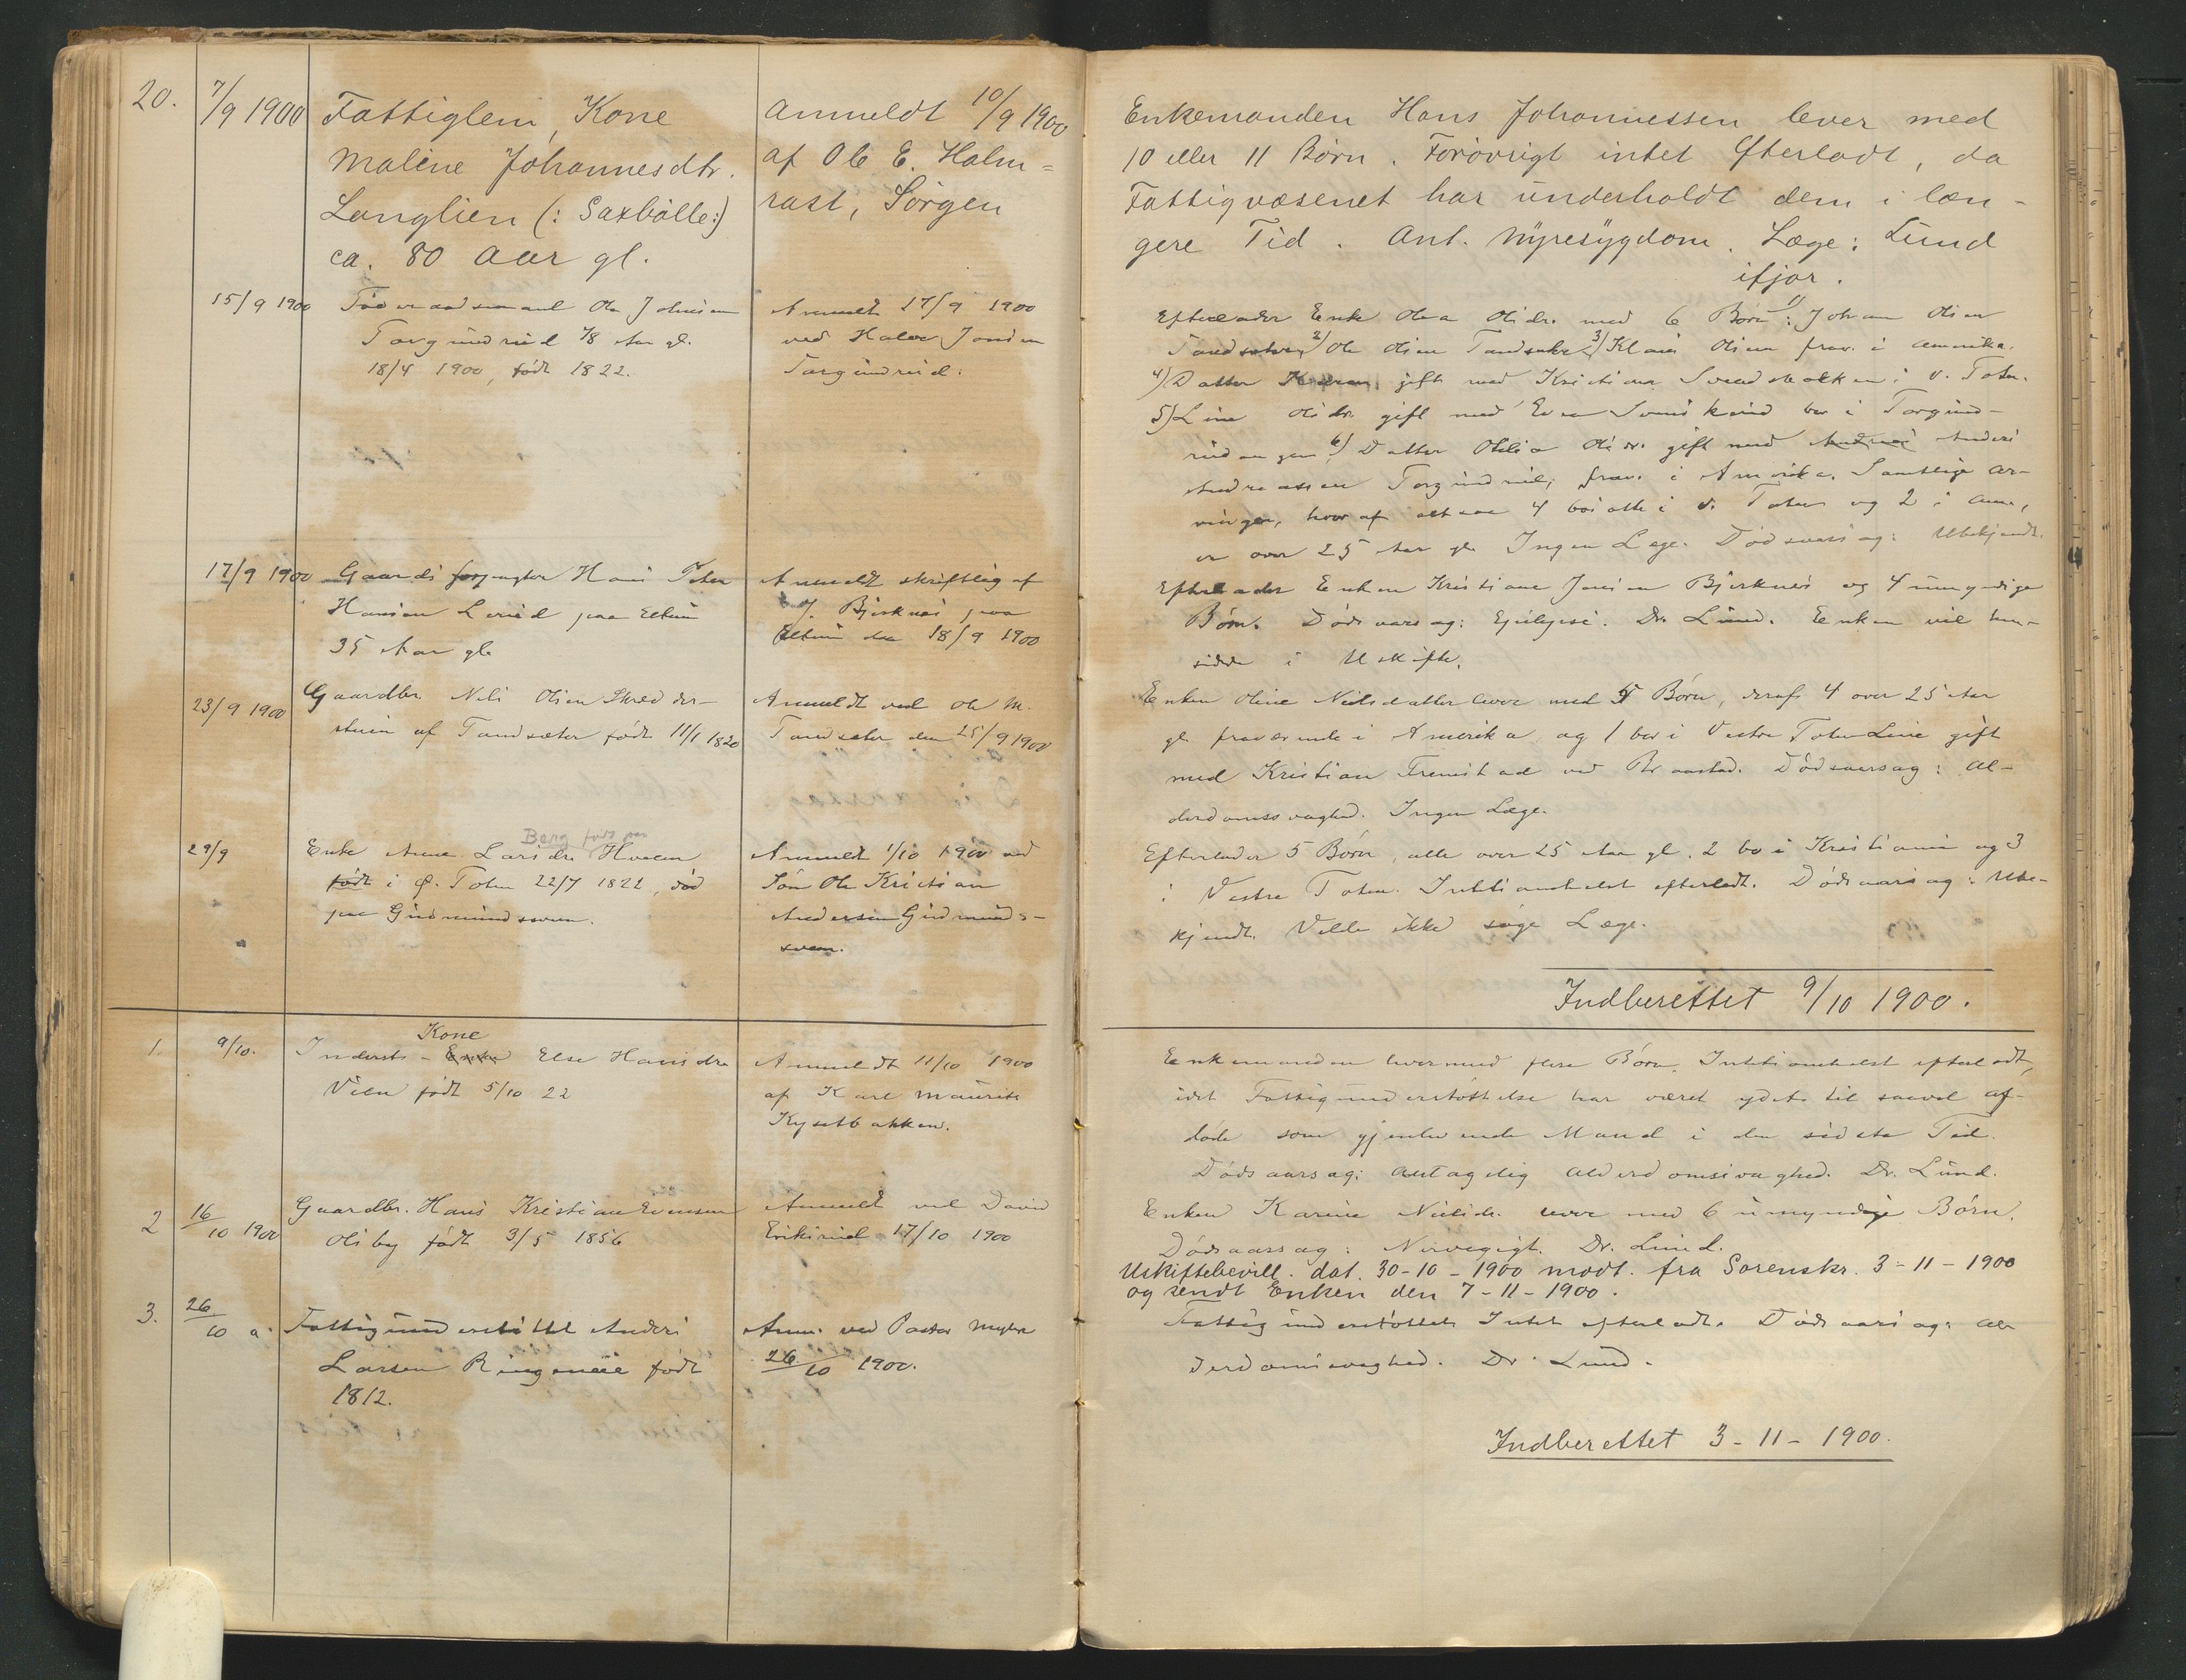 20.
7/9 1900
Fattiglem, Kone
Maline Johannesdtr.
Langlien (: Saxbølle:)
ca. 80 Aar gl.
Anmeldt 10/9 1900
af Ole E. Halm=
rast, Sørgen
Enkemanden Hans Johannessen lever med
10 eller 11 Børn. Forøvrigt intet Efterladt, da
Fattigvæsenet har underholdt dem i læn-
gere Tid. Ant. Nyresygdom. Læge: Lund
ifjor.
15/9 1900
Føderaadsmand Ole Johnsen
Torgundrud 78 Aar gl.
18/4 1900, født 1822.
Anmeldt 17/9 1900
ved Halvor Jonsen
Torgundrud.
Efterlader Enke Olea Olsdr. med 6 Børn: 1) Johan Olsen
Tandsæter 2) Ole Olsen Tandsæter 3) Klaus Olsen frav. i Amerika.
4) Datter gift med Kristian i V. Toten.
5) Line Olsdr. gift med Even bor i Torgund-
rudengen 6) Datter Otilia Olsdr. gift med Anders
Andreassen Torgundrud, frav. i Amerika. Samtlige Ar-
vinger, hvoraf altsaa 4 bosatte i V. Toten og 2 i Am.,
er over 25 Aar gl. Ingen Læge. Dødsaarsag: Ubekjendt.
17/9 1900
Gaardsforpagter Hans Peter
Hansen Lerud paa Elton
35 Aar gl.
Anmeldt skriftlig af
J. Bjerknes paa
Elton den 18/9 1900
Efterlader Enken Kristiane Jensen Bjerknes og 4 umyndige
Børn. Dødsaarsag: Epilepsi. Dr. Lund. Enken vil hen-
sidde i Uskifte.
23/9 1900
Gaardbr. Nils Olsen Skrædder-
stuen af Tandsæter født 11/1 1820
Anmeldt ved Ole M.
Tandsæter den 25/9 1900
Enken Oline Nielsdatter lever med 5 Børn, deraf 4 over 25 Aar
gl. fraværende i Amerika og 1 bor i Vestre Toten Line gift
med Kristian Fremstad ved Braastad. Dødsaarsag: Al-
derdomssvaghed. Ingen Læge.
29/9
Berg født paa
Enke Anne Larsdr. Hveem
født i Ø. Toten 22/7 1822, død
paa Gudmundsveen.
Anmeldt 1/10 1900 ved
Søn Ole Kristian
Andersen Gudmunds-
veen.
Efterlader 5 Børn, alle over 25 Aar gl. 2 bo i Kristiania og 3
i Vestre Toten. Intetsomhelst efterladt. Dødsaarsag: Ube-
kjendt. Vilde ikke søge Læge.
Indberettet 9/10 1900.
1.
9/10.
Kone
Inderst- Enke Else Hansdr.
født 5/10 22
Anmeldt 11/10 1900
af Karl Mauritz
Kysetbakken.
Enkemanden lever med flere Børn. Intetsomhelst efterladt,
idet Fattigunderstøttelse har været ydet til saavel af-
døde som gjenlevende Mand i den sidste Tid.
Dødsaarsag: Antagelig Alderdomssvaghed. Dr. Lund.
2
16/10 1900
Gaardbr. Hans Kristian Evensen
Olsby født 3/5 1856
Anmeldt ved David
Eriksrud 17/10 1900
Enken Karine Nielsdr. lever med 6 umyndige Børn.
Dødsaarsag: Nervegigt. Dr. Lund.
Uskiftebevill. dat. 30-10-1900 modt. fra Sorenskr. 3-11-1900
og sendt Enken den 7-11-1900.
3.
26/10 a.
Fattigunderstøttet Anders
Larsen Ringeneie født
1812.
Anm. ved Pastor Myhre
26/10 1900.
Fattigunderstøttet. Intet efterladt. Dødsaarsag: Al-
derdomssvaghed. Dr. Lund.
Indberettet 3-11-1900.